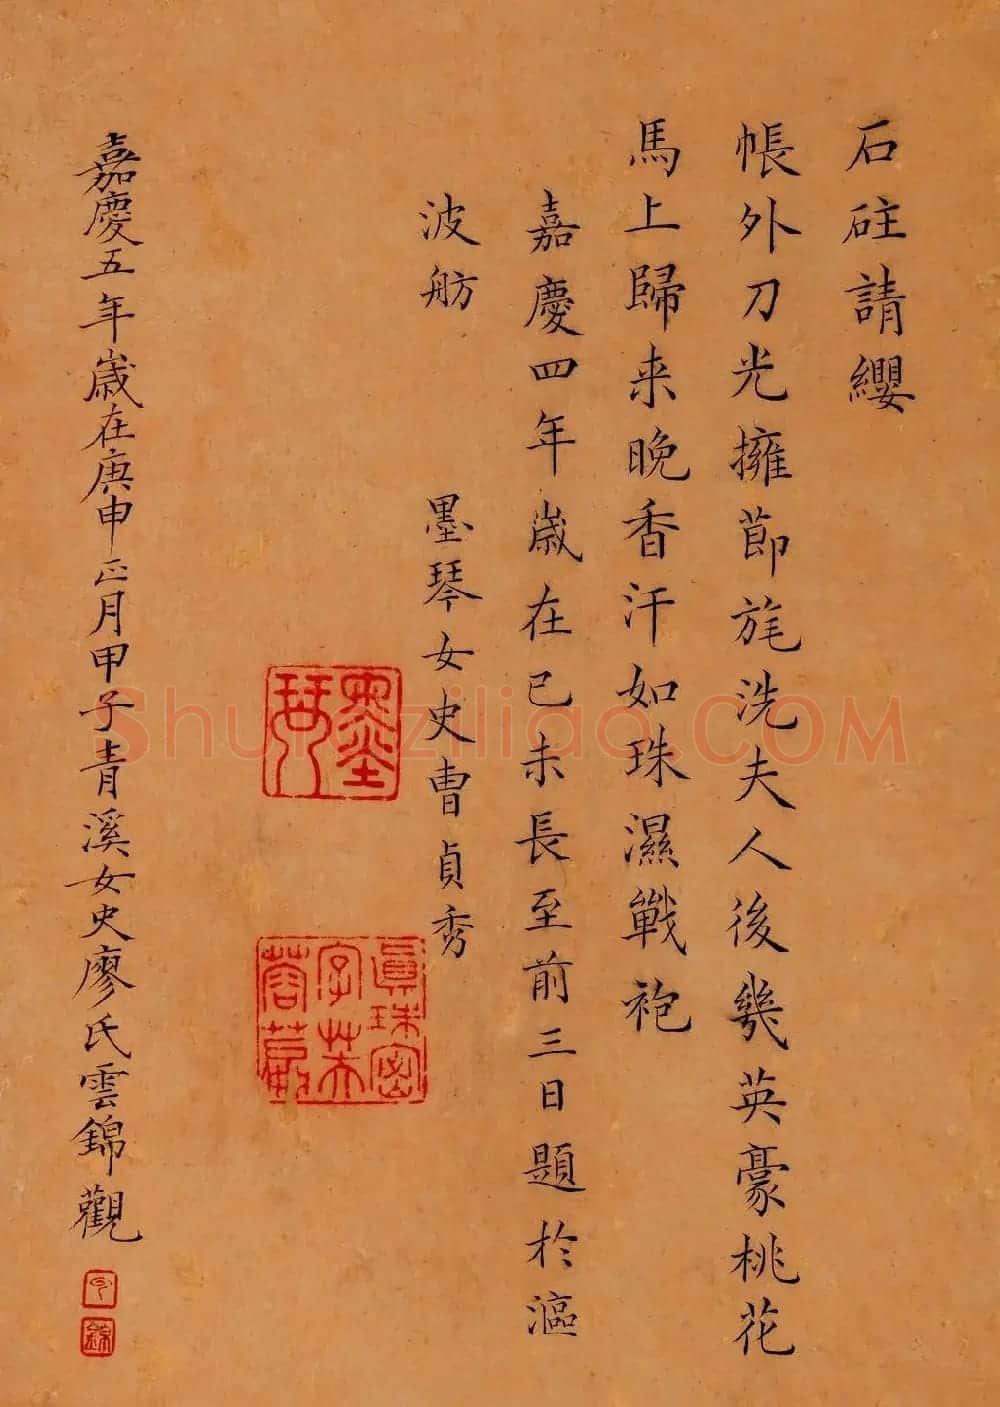 石砫請纓
帳外刀光擁節旄洗夫人後幾英豪桃花
馬上歸来晩香汗如珠濕戰袍
嘉慶四年歲在已未長至前三日題於漚
波舫
墨琴女史曹貞秀
墨琴
真珠密字芙蓉蕝
嘉慶五年歲在庚申正月甲子青溪女史廖氏雲錦觀
錦
Shufaziliao.COM